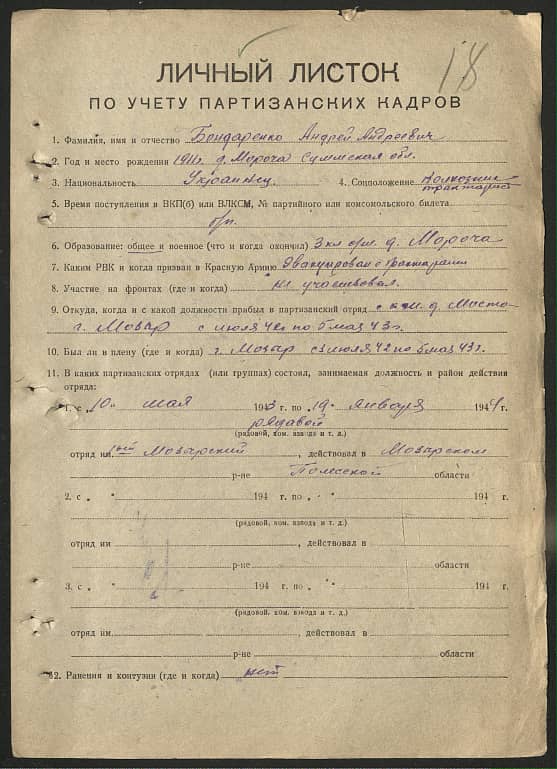 18
ЛИЧНЫЙ ЛИСТОК
ПО УЧЕТУ ПАРТИЗАНСКИХ КАДРОВ
1. Фамилия, имя и отчество Бондаренко Андрей Андреевич
2. Год и место рождения 1911г. д. Мороча Суммская обл.
3. Национальность Украинец 4. Соцположение колхозник
тракторист
5. Время поступления в ВКП(б) или ВЛКСМ, № партийного или комсомольского билета
б/п.
6. Образование: общее и военное (что и когда окончил) 3 кл д. Мороча
7. Каким РВК и когда призван в Красную Армию Эвакуирован с тракторами
8. Участие на фронтах (где и когда) не участвовал.
9. Откуда, когда и с какой должности прибыл в партизанский отряд с
г. Мозар с июля 42 по 5 мая 43г.
10. Был ли в плену (где и когда) г. Мозар с июля 42 по 5 мая 43г.
11. В каких партизанских отрядах (или группах) состоял, занимаемая должность и район действия
отряда:
1. с „10" мая 1943 г. по „19" января 1944 г.
рядавой
(рядовой, ком. взвода и т. д.)
отряд им. Мозарский, действовал в Мозарском
р-не Полесской области
2. с „ " 194 г. по „ " 194 г.
(рядовой, ком. взвода и т. д.)
отряд им , действовал в
р-не области
3. с „ " 194 г. по „ " 194 г.
(рядовой, ком. взвода и т. д.)
отряд им , действовал в
р-не области
12. Ранения и контузии (где и когда) нет